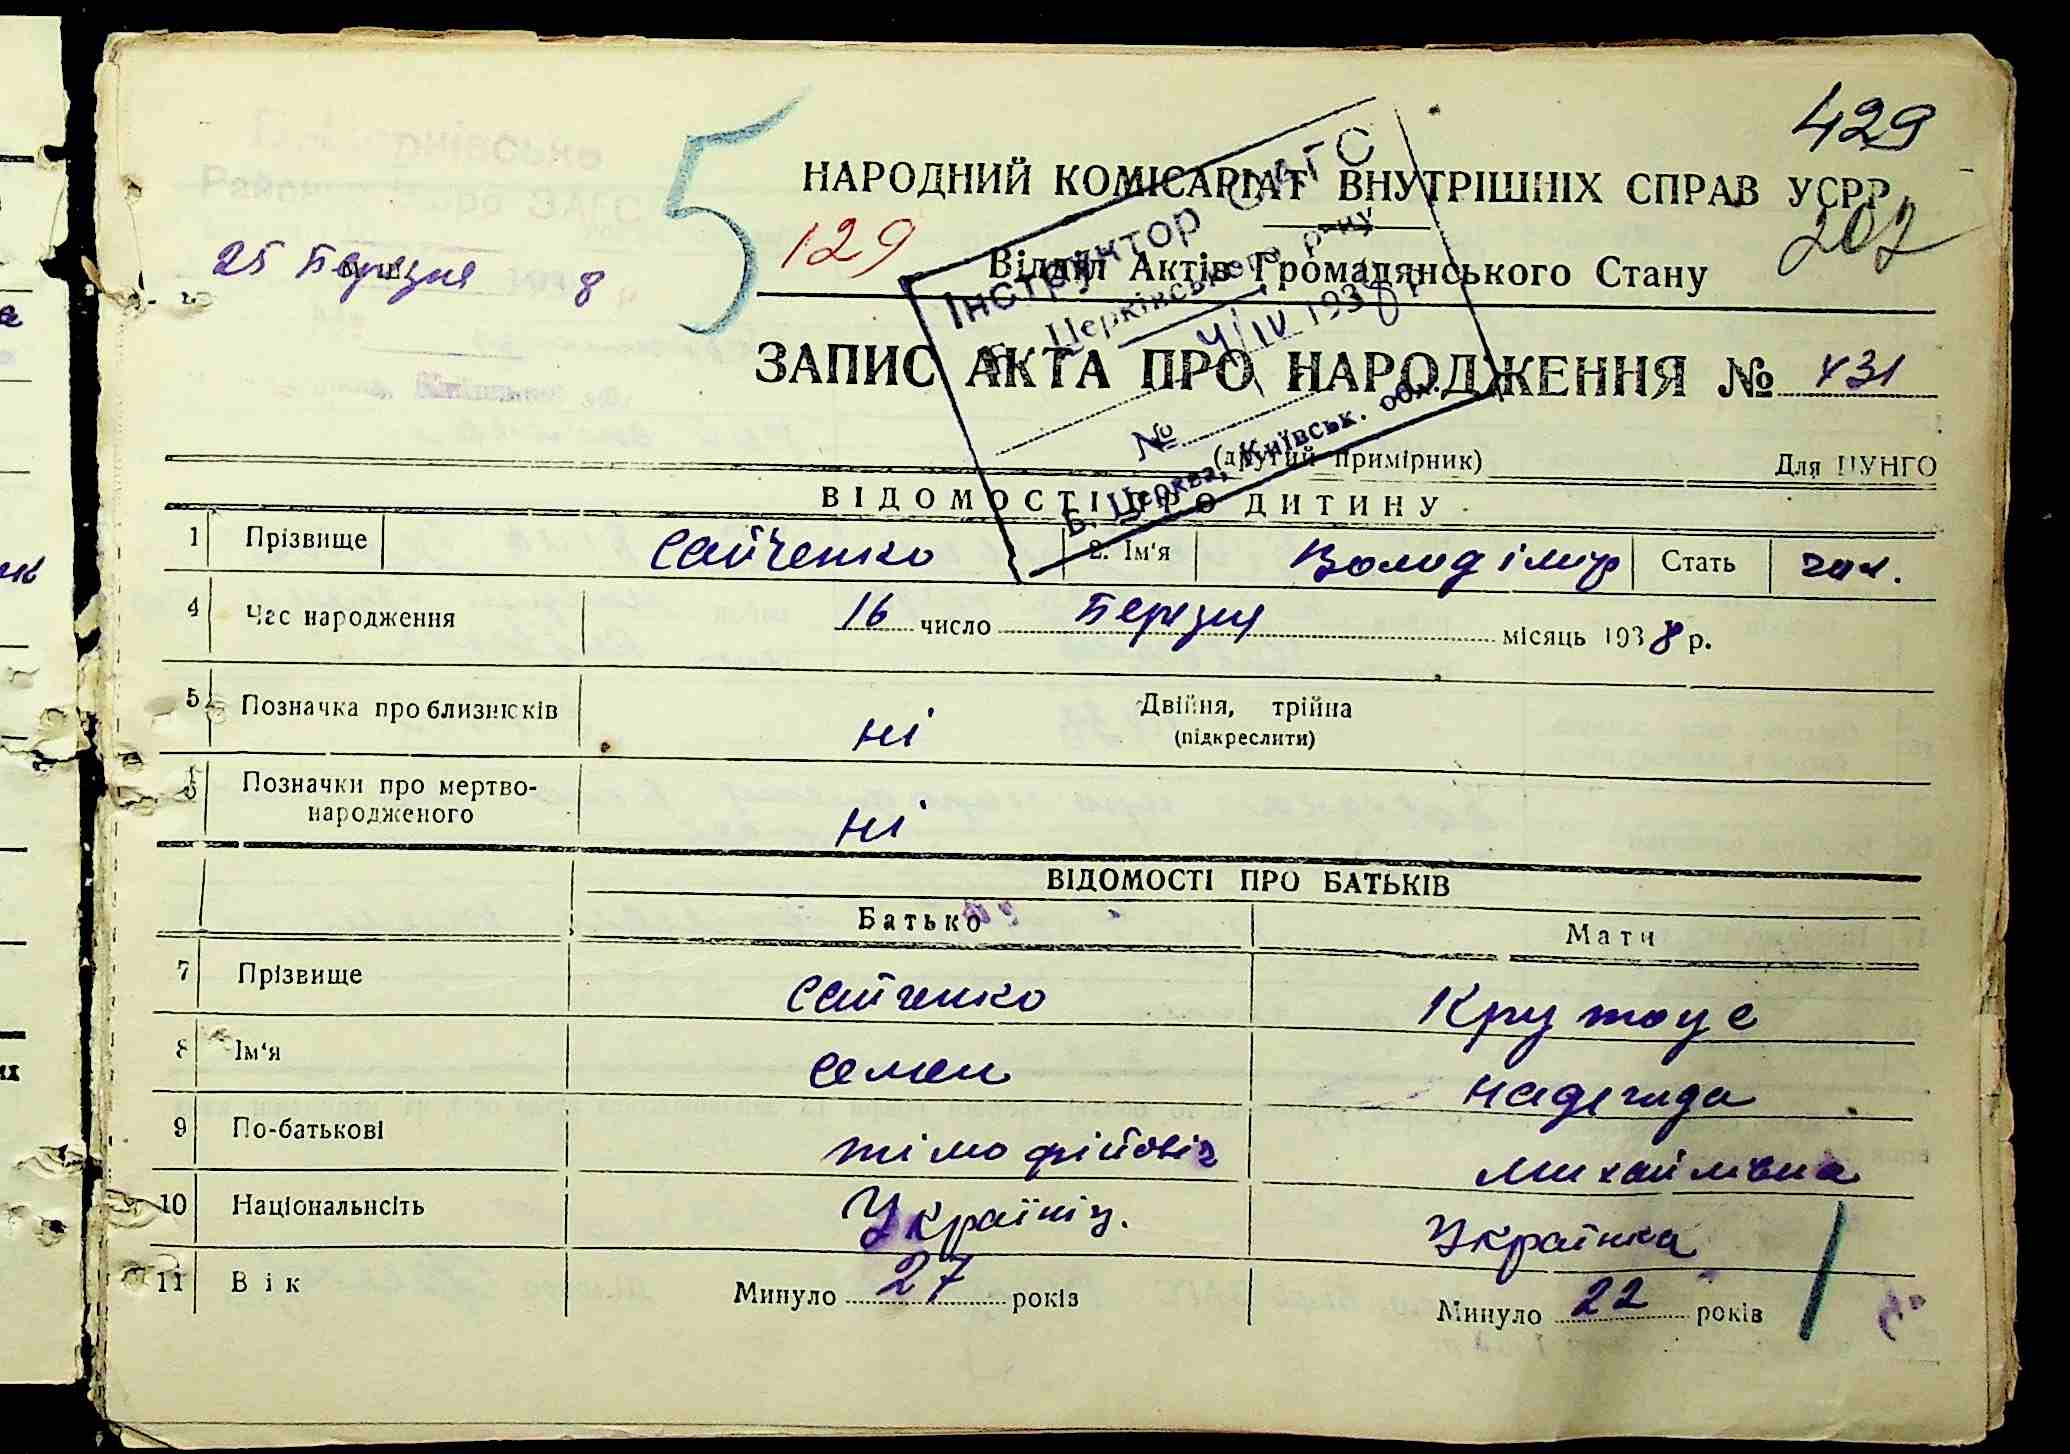 429
НАРОДНИЙ КОМІСАРІАТ ВНУТРІШНІХ СПРАВ УСРР
202
5
129
25 Березня 8
Відділ Актів Громадянського Стану
Інструктор ЗАГС
Б. Церківського р-ну
4/IV 1938 р.
№
Б. Церква, Київськ. обл.
ЗАПИС АКТА ПРО НАРОДЖЕННЯ № 431
(другий примірник)
Для ЦУНГО
ВІДОМОСТІ ПРО ДИТИНУ
1 Прізвище Сайченко 2. Ім'я Володімир Стать чол.
4 Час народження 16 число Березня місяць 1938 р.
5 Позначка про близнюків ні Двійня, трійна
(підкреслити)
Позначки про мертво-
народженого ні
ВІДОМОСТІ ПРО БАТЬКІВ
Батько Мати
7 Прізвище Сайченко Крутоус
8 Ім'я Семен Надежда
9 По-батькові Тімофійовіч Михайлівна
10 Національнсіть Українц. Українка
11 Вік Минуло 27 років Минуло 22 років